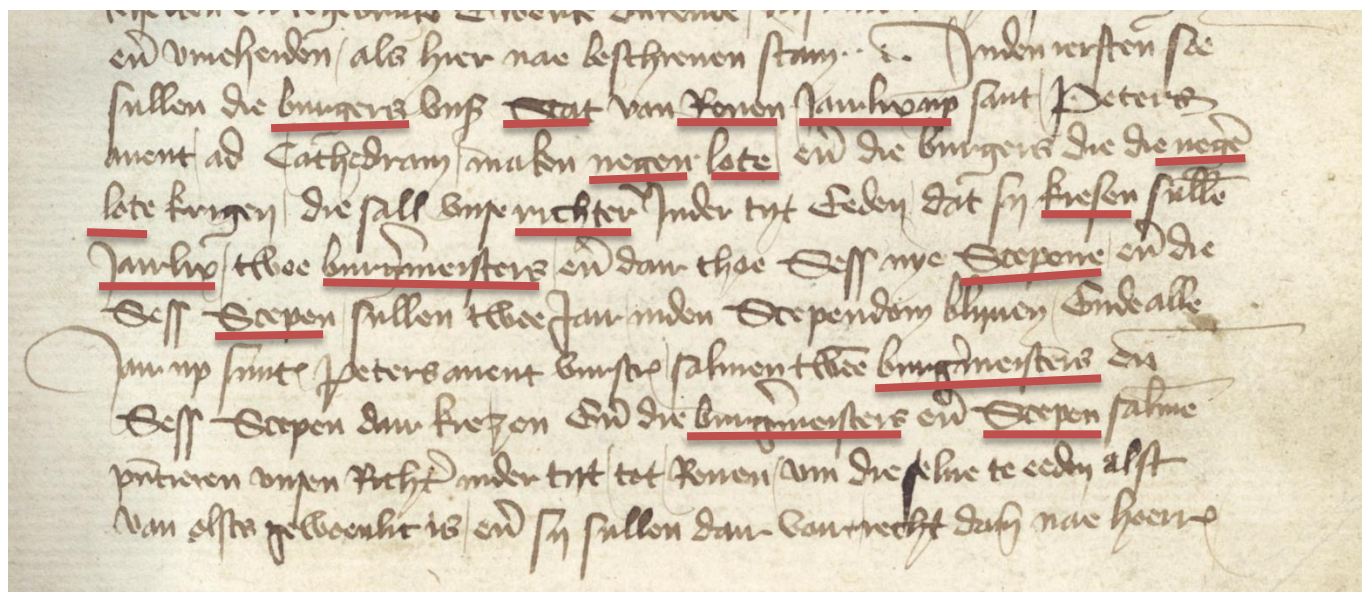 en̄ vmeheiden / als hier nae beschreuen stain In den iersten soe
sullen die burgers vnß Stat van Reuen Jairlix up sant Peters
auent ad Cathedram / maken negen lote en̄ die burgers die die negē
lote krigen / die sall vnse richter Inder tijt Eeden dat sij kiesen sullē
Jairlix / twee burg̃meisters en̄ dair thoe Sess nye Scepene en̄ die
Sess Scepen sullen twee Jair inden Scependom blijuen Ende alle
Jair up sunte Peters auent vurscr̃ / salmen twēe burg̃meisters en̄
Sess Scepen dair kiezen En̄ die burg̃meisters en̄ Scepen salmē
pn̄tieren vnsen Richt̃ inder tijt tot Reuen / vm die selue te eeden alst
van alsts gewoenlic is / en̄ sij sullen dair vair recht dain nae heerr̃